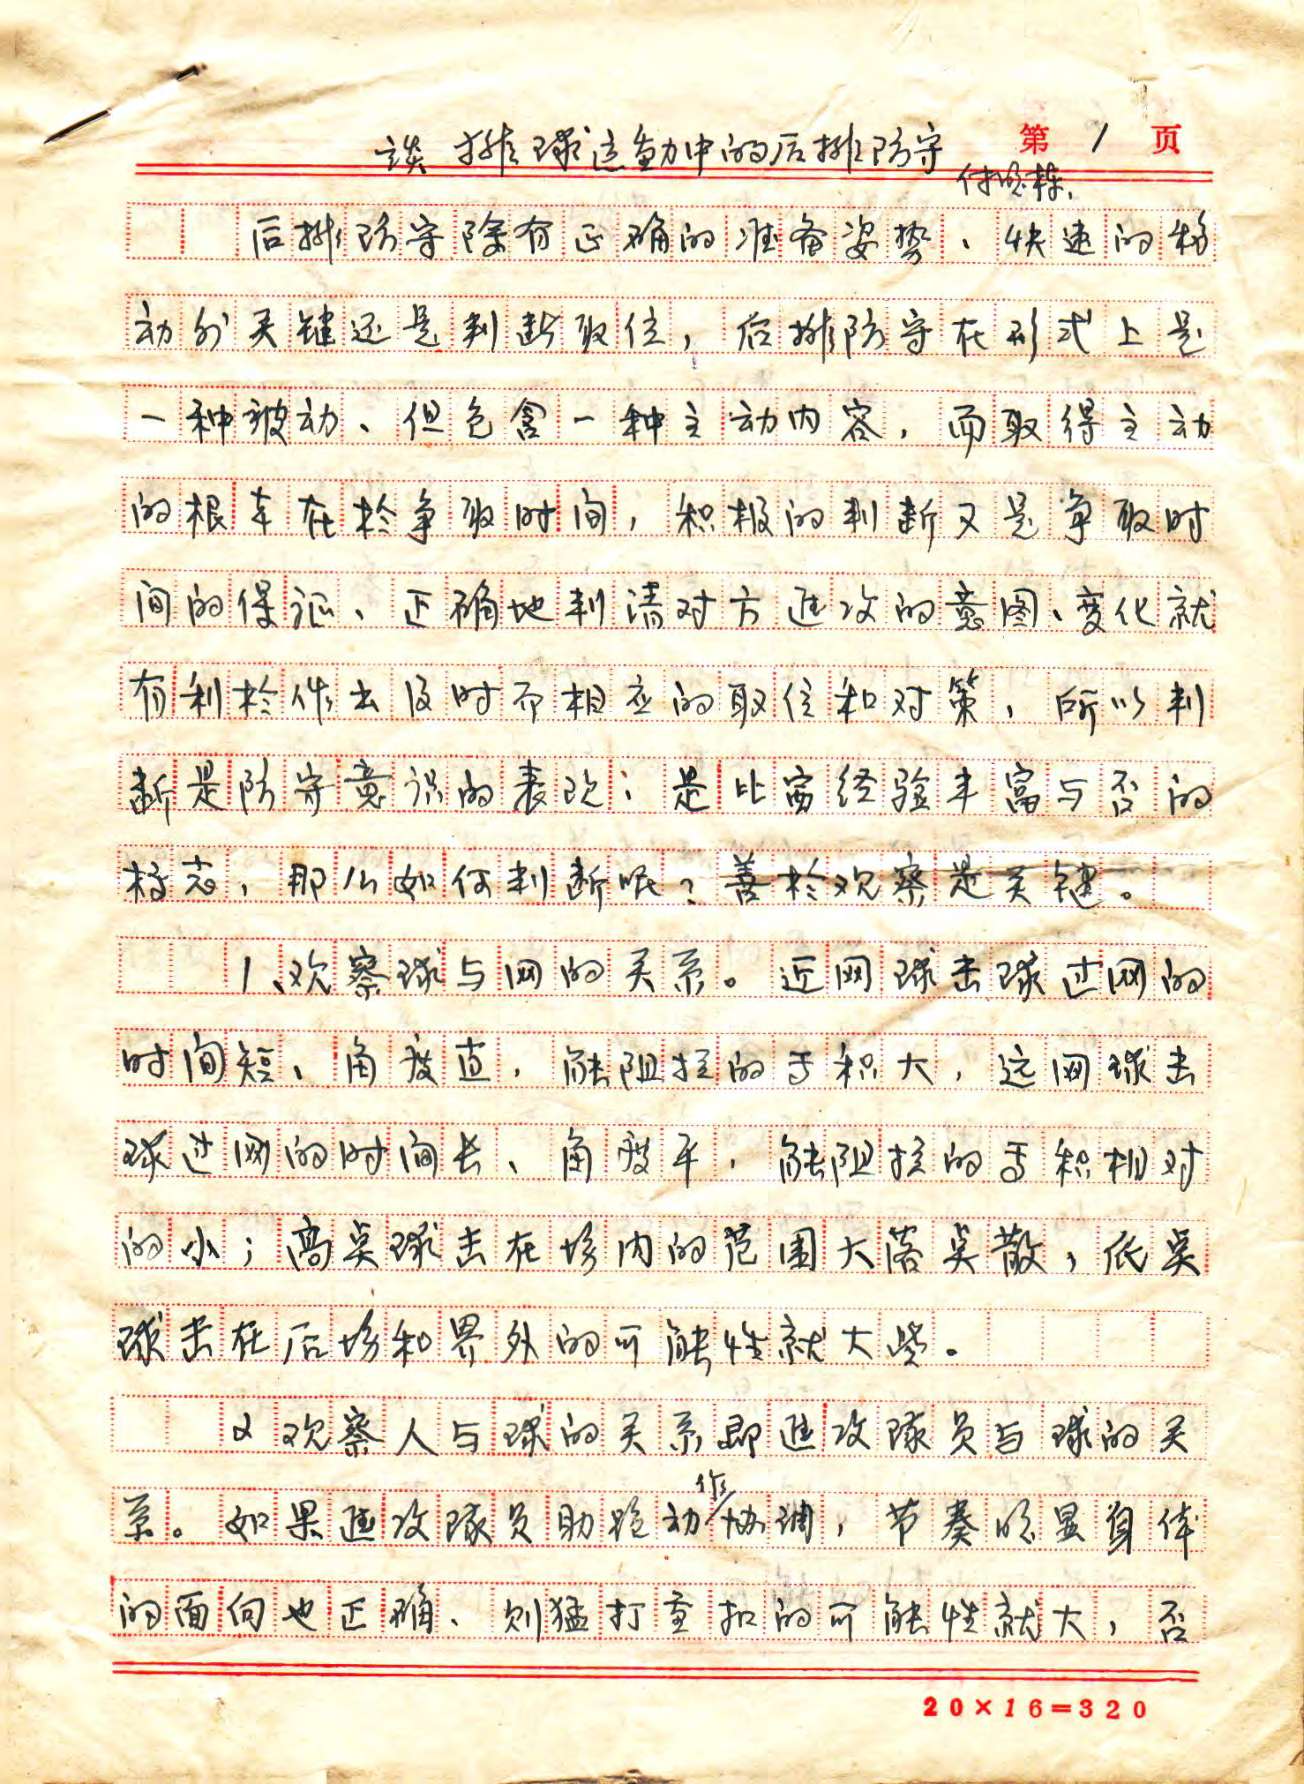 谈排球运动中的后排防守
第1页
后排防守除有正确的准备姿势、快速的移
动外关键还是判断取位，后排防守在形式上是
一种被动、但包含一种主动内容，而取得主动
的根本在於争取时间，积极的判断又是争取时
间的保证、正确地判清对方进攻的意图、变化就
有利於作出及时而相应的取位和对策，所以判
断是防守意识的表现；是比赛经验丰富与否的
标志，那么如何判断呢？善於观察是关键。
1、观察球与网的关系。近网球击球过网的
时间短、角度直，能阻拦的面积大，远网球击
球过网的时间长、角度平，能阻拦的面积相对
的小；高点球击在场内的范围大落点散，低点
球击在后场和界外的可能性就大些。
2 观察人与球的关系即进攻队员与球的关
系。如果进攻队员助跑动作协调，节奏明显身体
的面向也正确、则猛打重扣的可能性就大，否
20×16=320